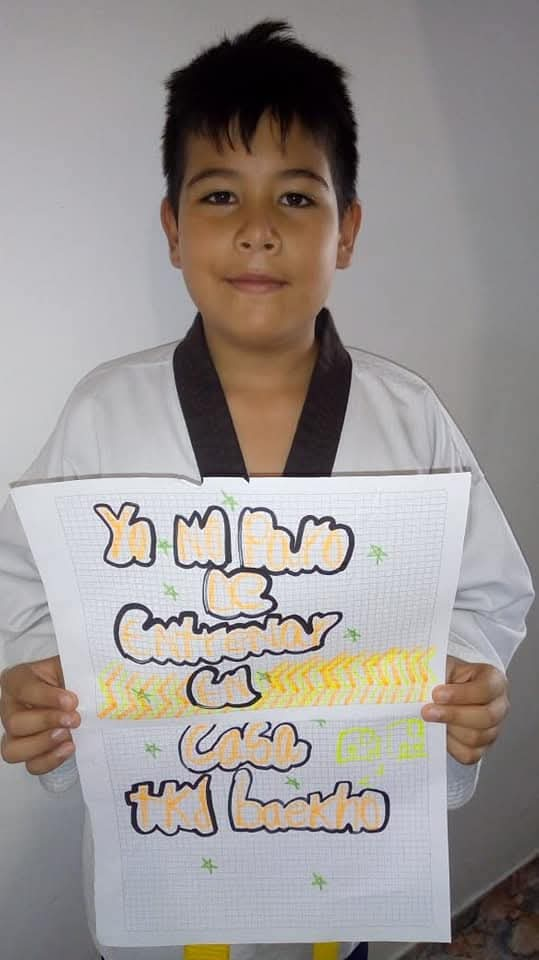 Yo no Paro
DE
Entrenar
En
Casa
tkd baekho